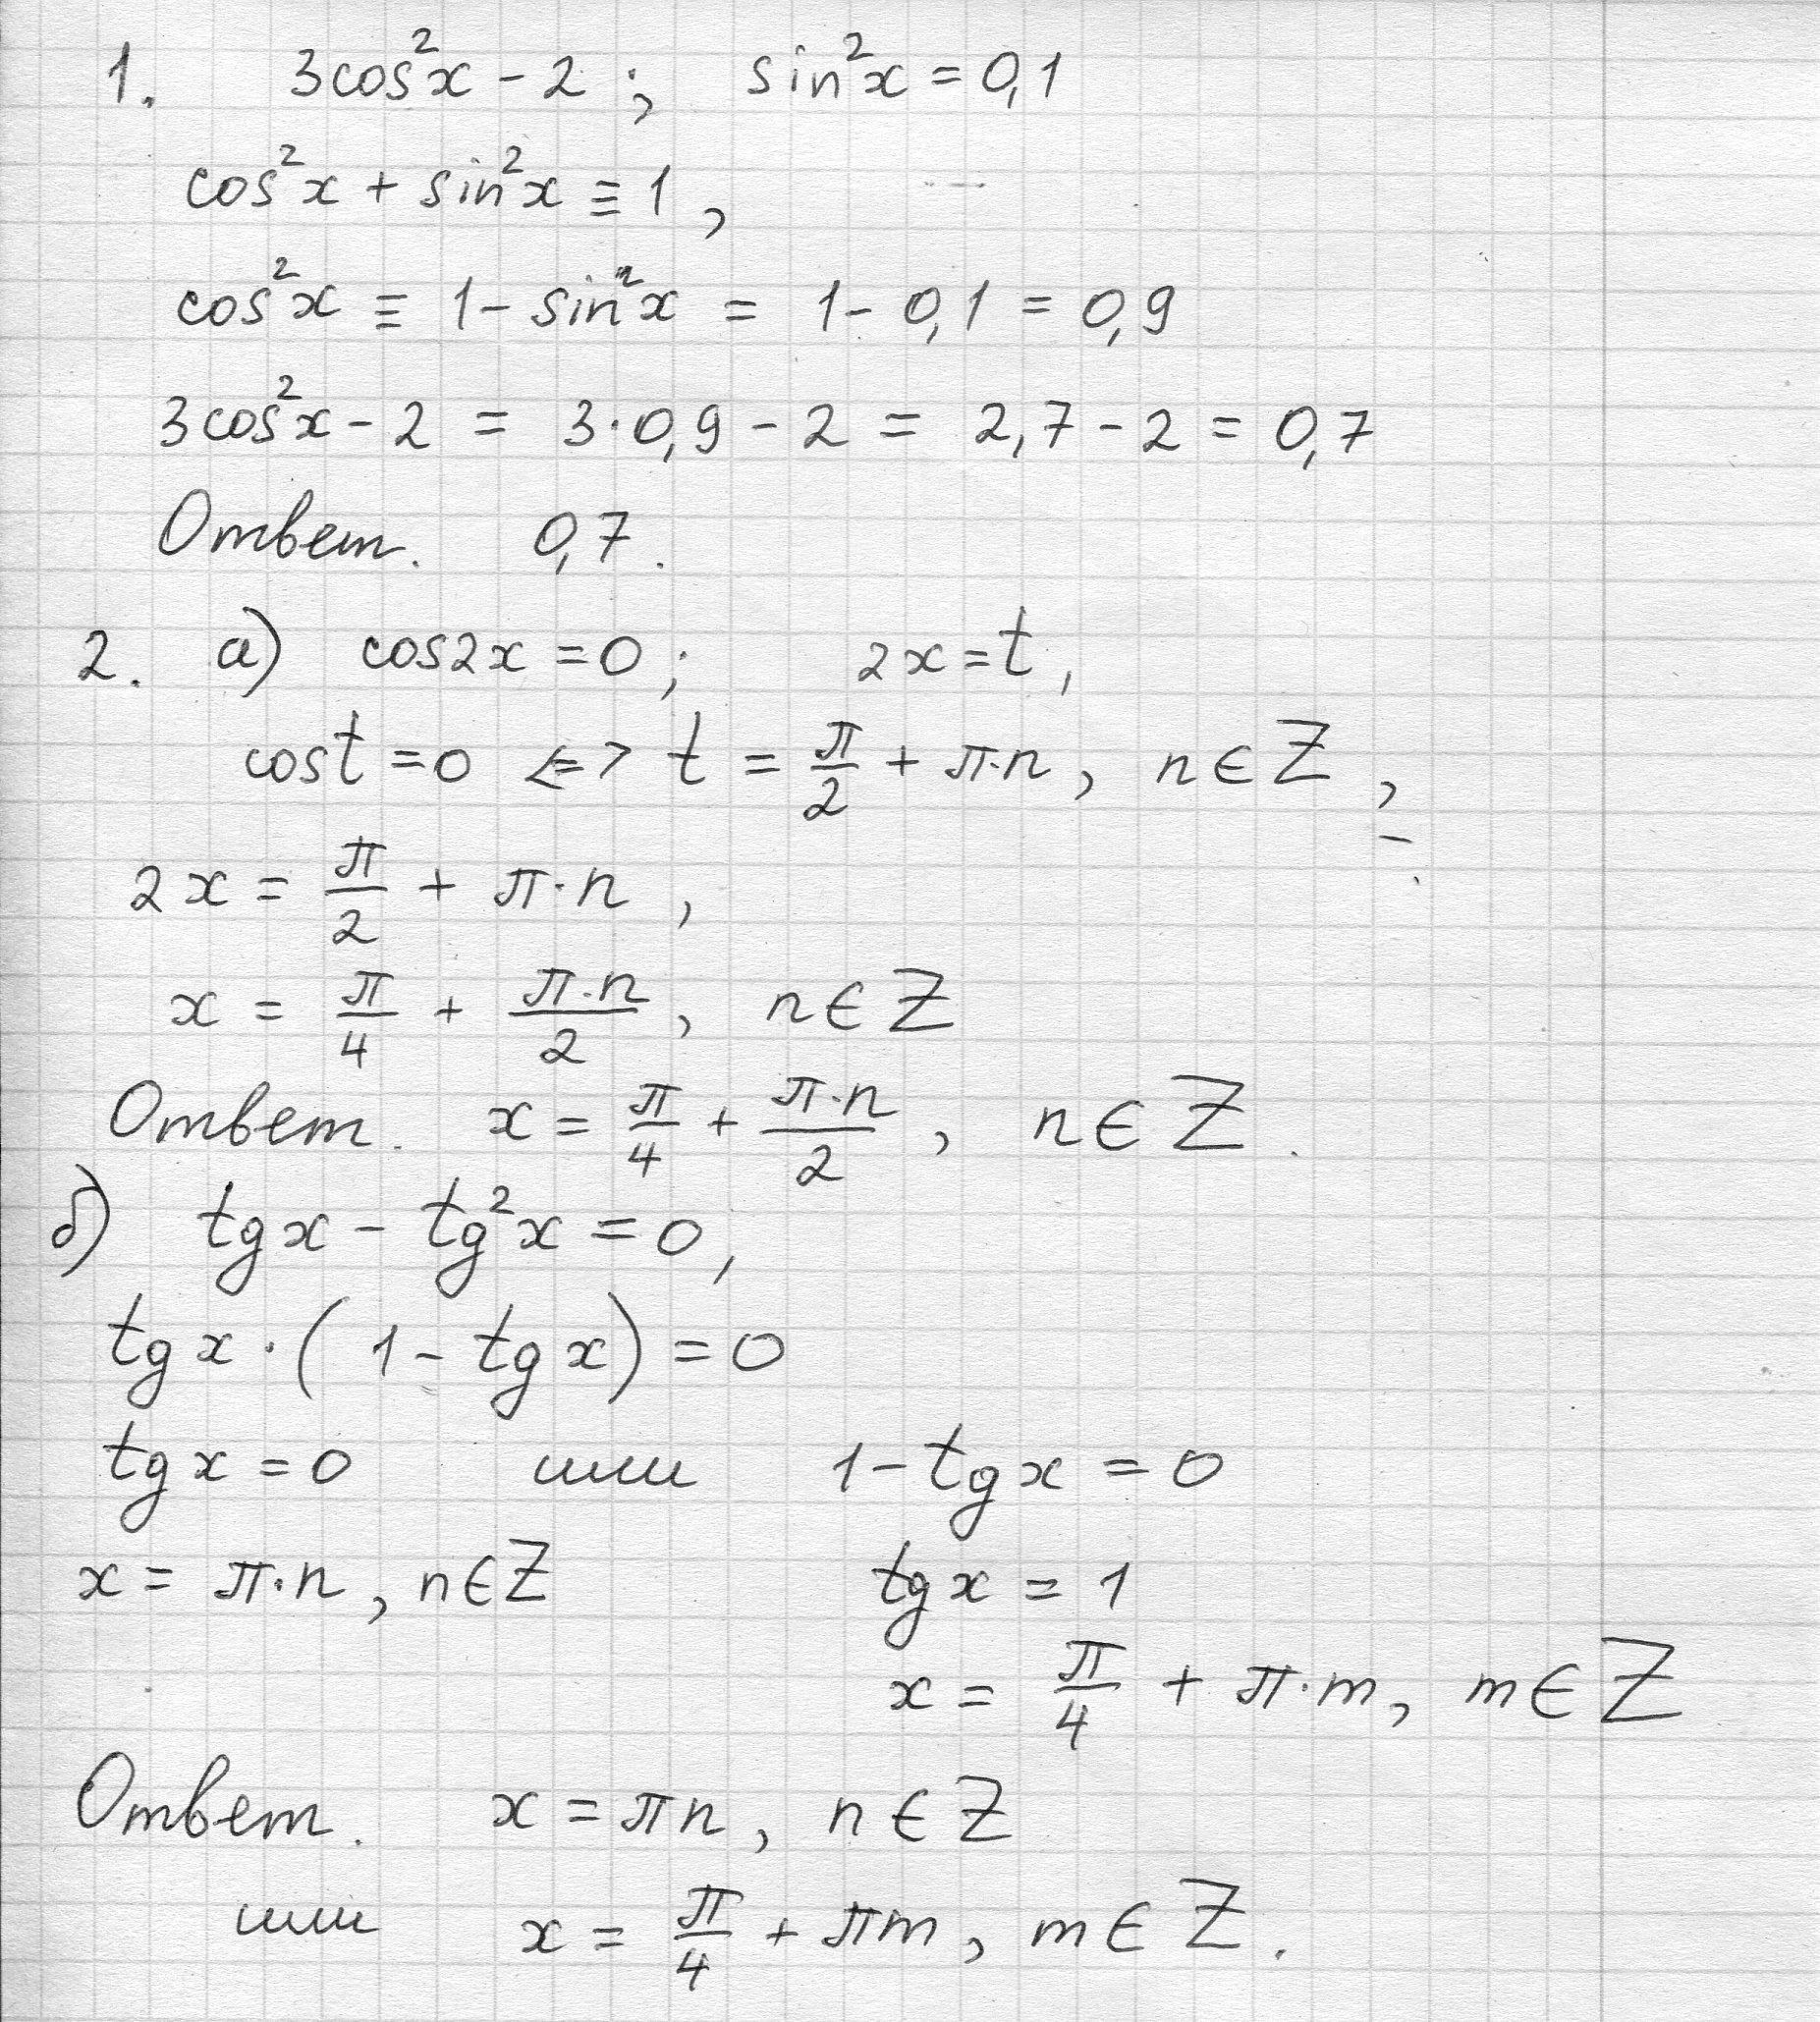 1. 3cos²x - 2 ; sin²x = 0,1
cos²x + sin²x ≡ 1 ,
cos²x ≡ 1 - sin²x = 1 - 0,1 = 0,9
3cos²x - 2 = 3·0,9 - 2 = 2,7 - 2 = 0,7
Ответ. 0,7.
2. а) cos2x = 0; 2x = t,
cost = 0 <=> t = π/2 + π·n, n∈Z ,
2x = π/2 + π·n ,
x = π/4 + π·n/2 , n∈Z
Ответ. x = π/4 + π·n/2 , n∈Z.
б) tgx - tg²x = 0,
tgx·(1 - tgx) = 0
tgx = 0 или 1 - tgx = 0
x = π·n, n∈Z tgx = 1
x = π/4 + π·m, m∈Z
Ответ. x = πn, n∈Z
или x = π/4 + πm, m∈Z.